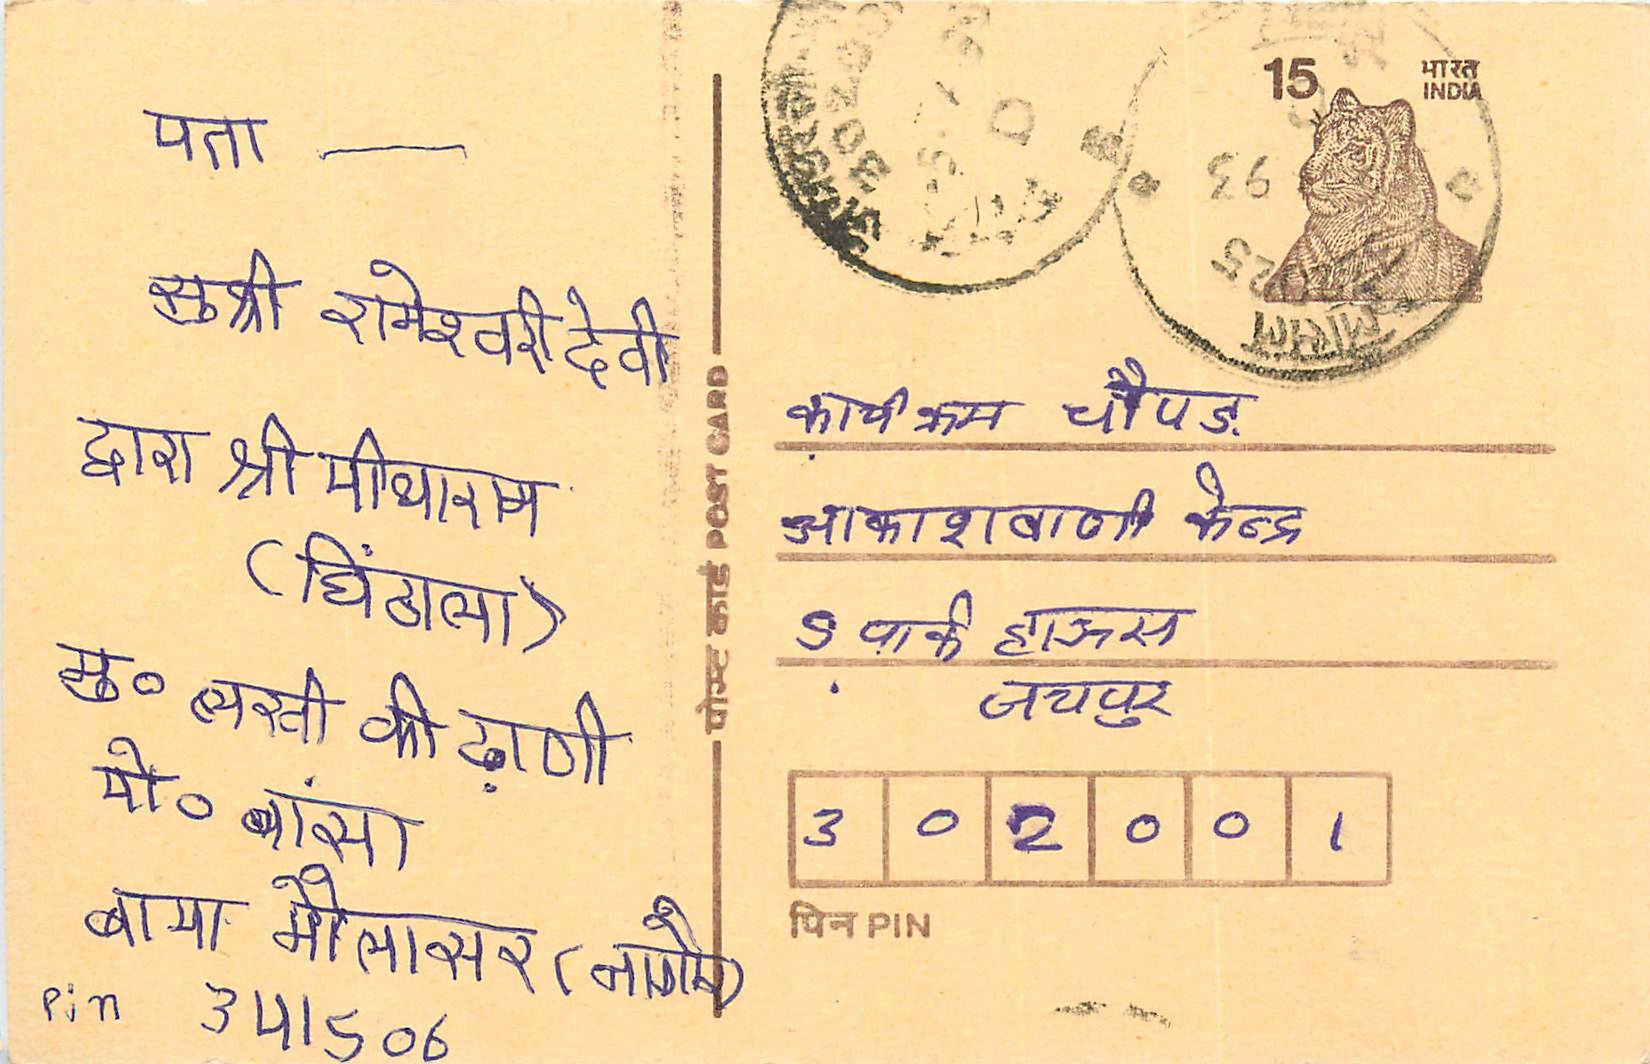 पता —
सुश्री रामेश्वरी देवी
द्वारा श्री मीथाराम
(घिंठाला)
मु० लखी की ढ़ाणी
पो० बांसा
बाया मौलासर (नागौर)
Pin 341506
पोस्ट कार्ड POST CARD
15 भारत
INDIA
93
कार्यक्रम चौपड़
आकाशवाणी केन्द्र
5 पार्क हाऊस
जयपुर
302001
पिन PIN